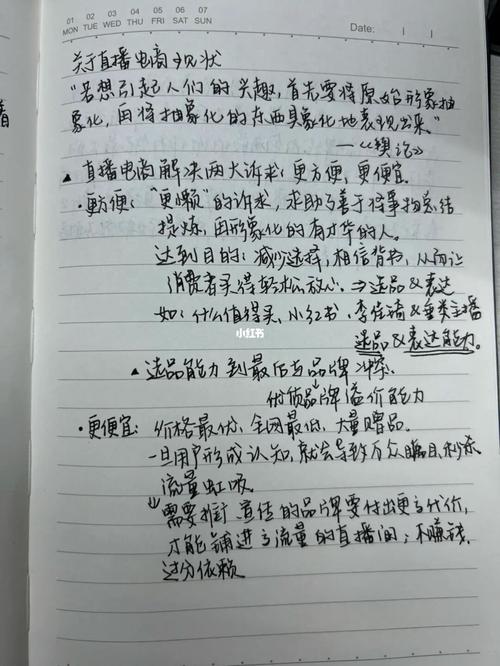 01 02 03 04 05 06 07
MON TUE WED THU FRI SAT SUN
Date:
关于直播电商现状
"若想引起人们的兴趣,首先要将原始形象抽
象化,再将抽象化的东西具象化地表现出来。"
——《契诃》
▲直播电商解决两大诉求:更方便,更便宜
·更方便:"更懒"的诉求,求助了善于将事物总结
提炼,再形象化的有才华的人。
达到目的:减少选择,相信背书,从而让
消费者买得轻松放心。⇒选品&表达
如:什么值得买、小红书、李佳琦&垂类主播
选品&表达能力。
小红书
▲选品能力到最后与品牌冲突
优质品牌溢价能力
·更便宜:价格最优,全网最低,大量赠品。
一旦用户形成认知,就会导致万众瞩目,秒杀
流量虹吸。
需要推广宣传的品牌要付出更多代价,
才能铺进高流量的直播间;不赚钱,
过分依赖